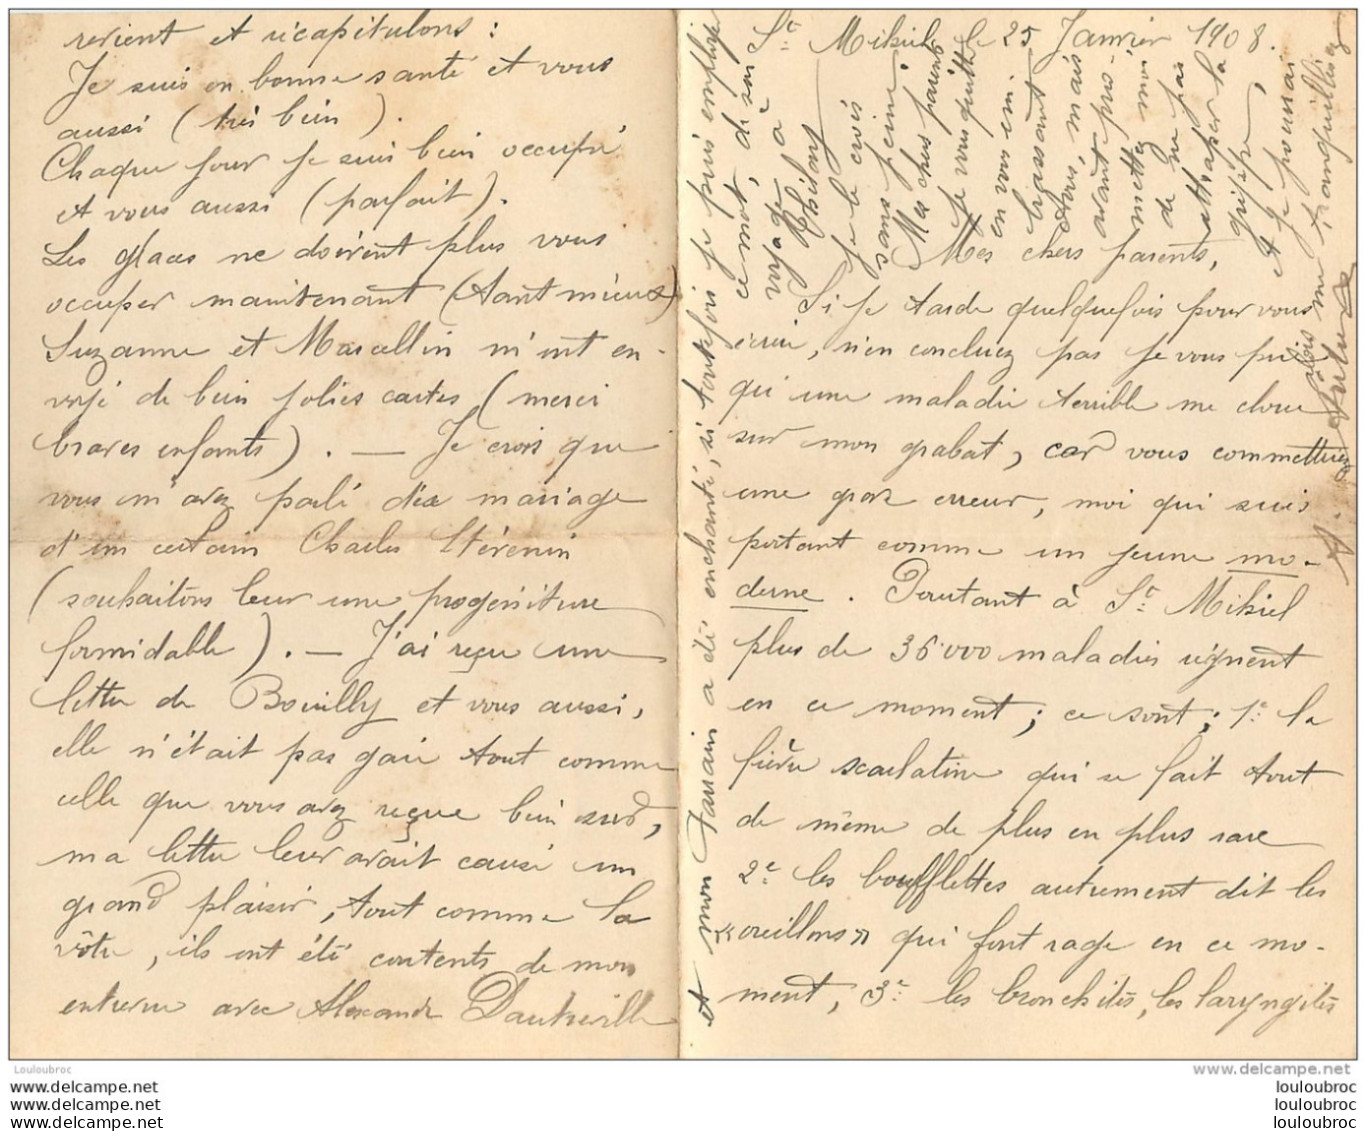 St Mihiel le 25 Janvier 1908.
Mes chers parents,
Si je tarde quelquefois pour vous
écrire, n'en concluez pas je vous prie
qu'une maladie terrible me cloue
sur mon grabat, car vous commettriez
une grave erreur, moi qui suis
portant comme un jeune mo-
derne. Pourtant à St Mihiel
plus de 36000 maladies règnent
en ce moment; ce sont; 1e la
fièvre scarlatine qui se fait tout
de même de plus en plus rare
2e les boufflettes autrement dit les
«oreillons» qui font rage en ce mo-
ment, 3e les bronchites, les laryngites
revient et récapitulons:
Je suis en bonne santé et vous
aussi (très bien).
Chaque jour je suis bien occupé
et vous aussi (parfait).
Les glaces ne doivent plus vous
occuper maintenant (tant mieux)
Suzanne et Marcellin m'ont en-
voyé de bien jolies cartes (merci
braves enfants). — Je crois que
vous m'avez parlé du mariage
d'un certain Charles
(souhaitons leur une progéniture
formidable). — J'ai reçu une
lettre de Bouilly et vous aussi,
elle n'était pas gaie tout comme
celle que vous avez reçue bien sûr,
ma lettre leur avait causé un
grand plaisir, tout comme la
vôtre, ils ont été contents de mon
entrevue avec Alexandre Dautreville
et mon Parrain a été enchanté, si toutefois je puis employer
ce mot, de son
voyage à
Thisons
je le crois
sans peine
Mes chers parents
je vous quitte
en vous em
brassant
tous, mais
avant pro-
mettez moi
de ne pas
attraper la
grippe,
et je pourrai
alors me tranquilliser
Louloubroc
www.delcampe.net
www.delcampe.net
www.delcampe.net
www.delcampe.net
louloubroc
louloubroc
louloubroc